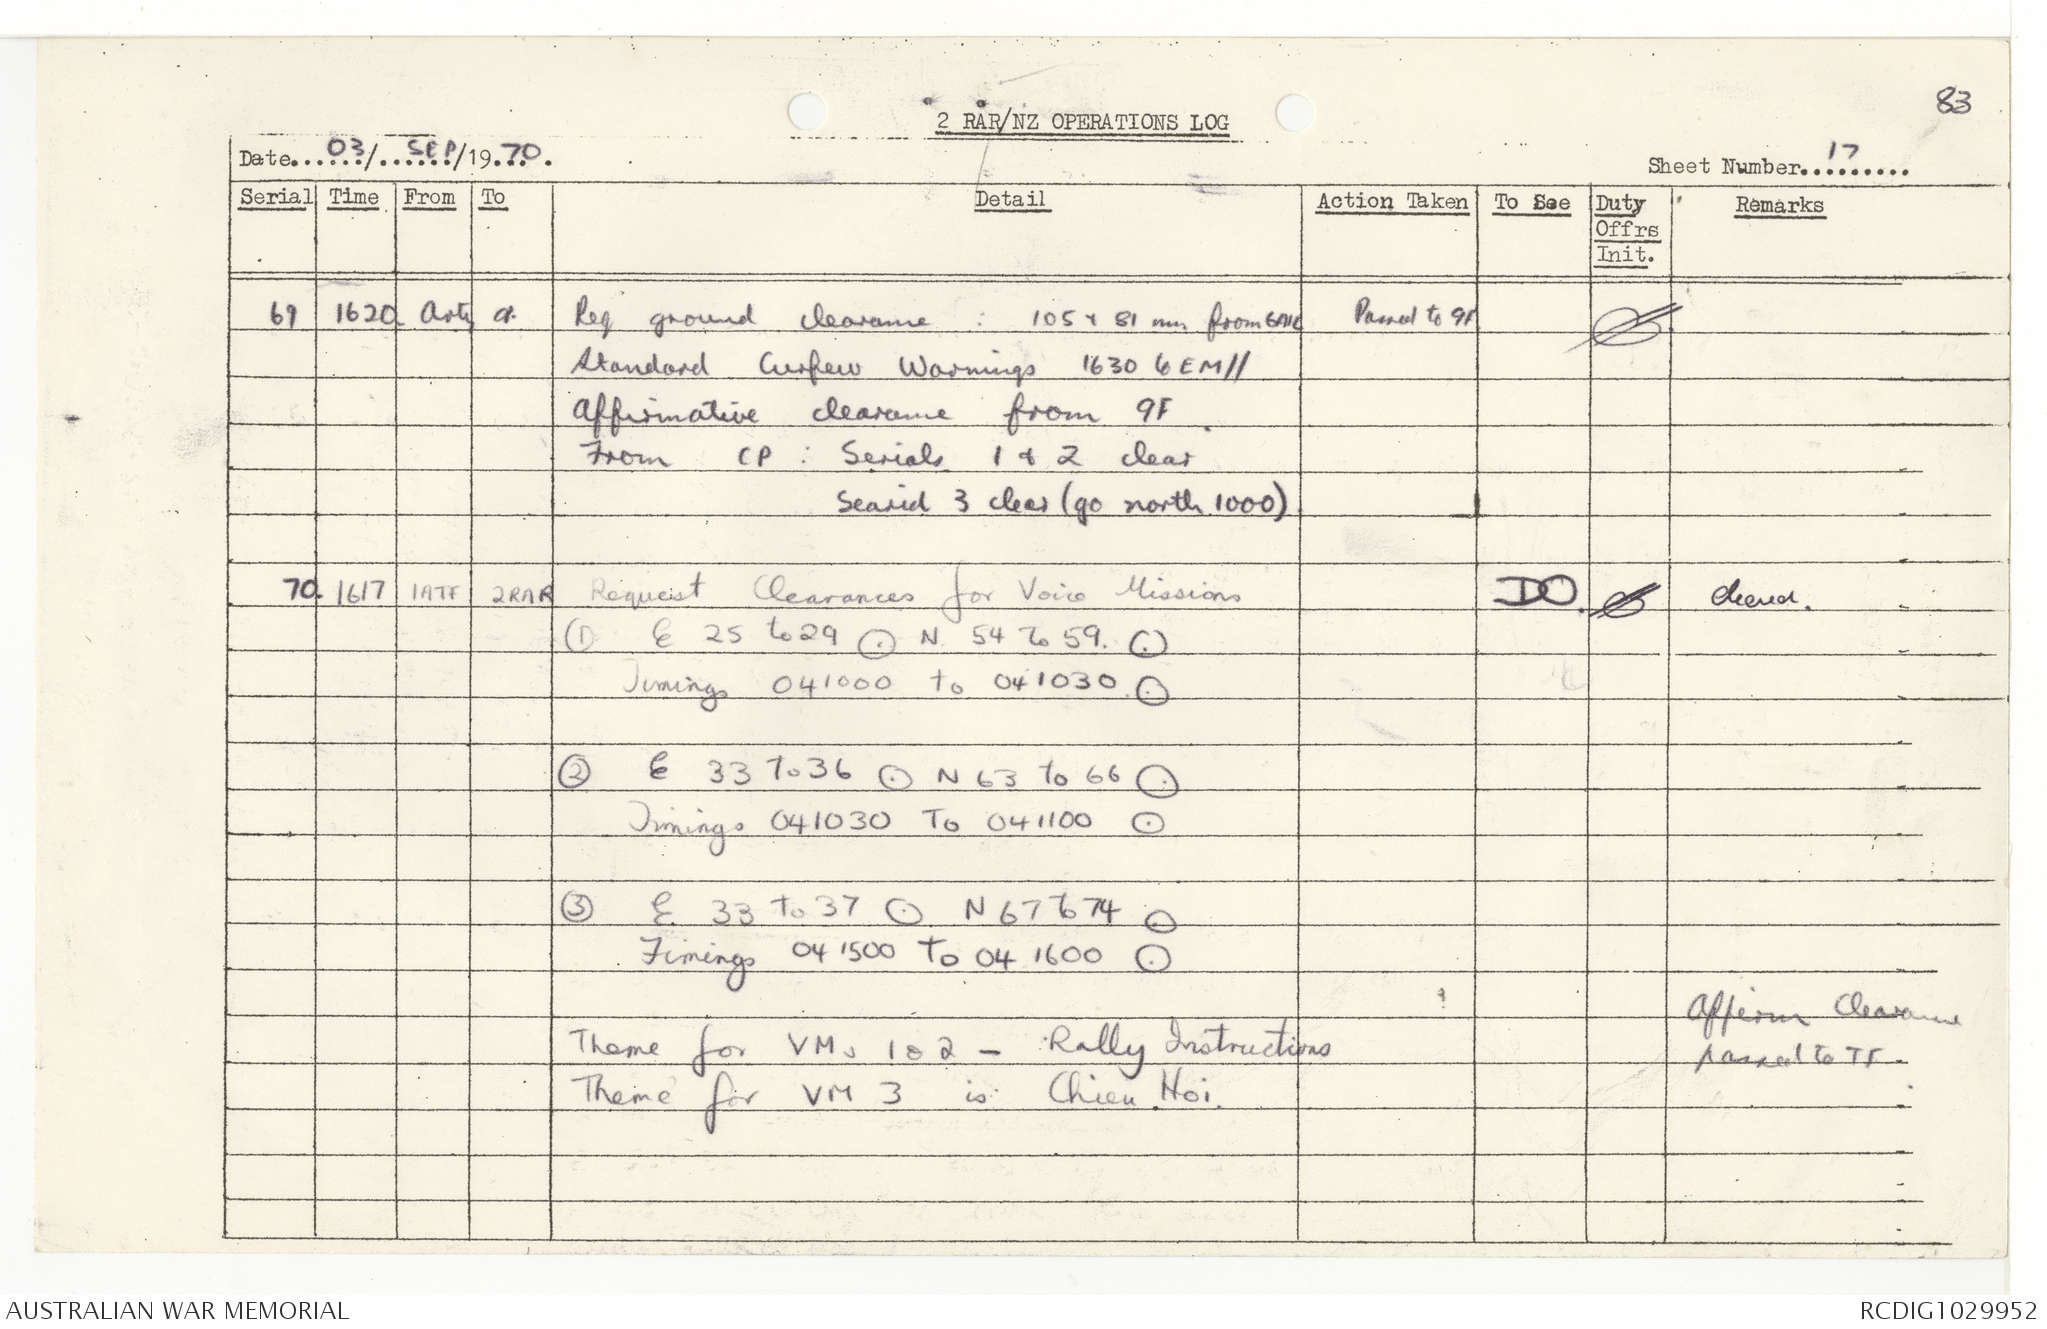 83
2 RAR/NZ OPERATIONS LOG
Date......03/......SEP/19.70.
Sheet Number..17.......
Serial Time From To Detail Action Taken To See Duty Offrs Init. Remarks
69 1620 Arty Req ground clearance : 105 & 81 mm from Passed to 9F
Standard Curfew Warnings 1630 6EM//
Affirmative clearance from 9F
From CP : Serials 1 & 2 clear
Searid 3 clear (go north 1000)
70. 1617 1ATF 2RAR Request Clearances for Voice Missions DO. cleared.
① E 25 to 29 ⊙ N 54 To 59. ⊙
Timings 041000 to 041030 ⊙
② E 33 To 36 ⊙ N 63 To 66 ⊙
Timings 041030 To 041100 ⊙
③ E 33 To 37 ⊙ N 67 To 74 ⊙
Timings 041500 To 041600 ⊙
Affirm Clearance
Theme for VMs 1 & 2 - Rally Instructions passed to TF.
Theme for VM 3 is Chieu Hoi.
AUSTRALIAN WAR MEMORIAL
RCDIG1029952